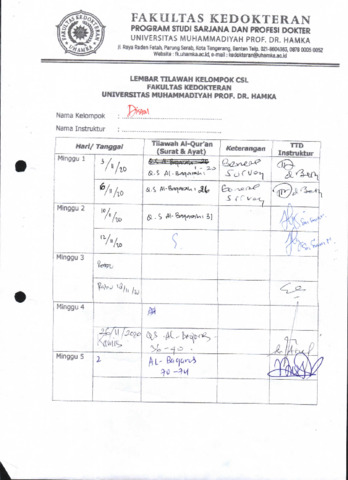 FAKULTAS KEDOKTERAN
PROGRAM STUDI SARJANA DAN PROFESI DOKTER
UNIVERSITAS MUHAMMADIYAH PROF. DR. HAMKA
Jl. Raya Raden Fatah, Parung Serab, Kota Tangerang, Banten
Website : fk.uhamka.ac.id, e-mail : kedokteran@uhamka.ac.id
LEMBAR TILAWAH KELOMPOK CSL
FAKULTAS KEDOKTERAN
UNIVERSITAS MUHAMMADIYAH PROF. DR. HAMKA
Nama Kelompok :
Nama Instruktur :
Hari/ Tanggal Tilawah Al-Qur'an (Surat & Ayat) Keterangan TTD Instruktur
Minggu 1 3/11/20 Q.S Al-Baqarah: - 20 General Survey
6/11/20 Q.S Al-Baqarah: 26 General Survey
Minggu 2 10/11/20 Q.S Al-Baqarah: 31
12/11/20
Minggu 3
Minggu 4
26/11/2020 Kamis QS Al-Baqarah 36-40
Minggu 5 2 AL-Baqarah 70-74